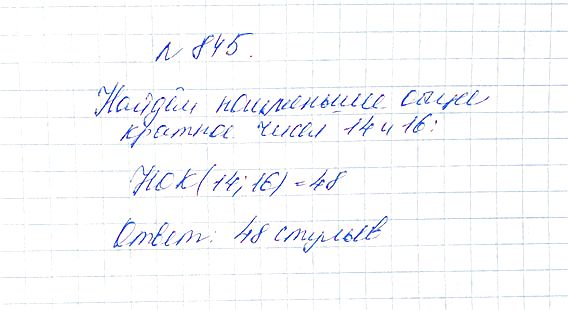 № 845.
Найдём наименьшее общее
кратное чисел 14 и 16:
НОК(14; 16) = 48
Ответ: 48 стульев